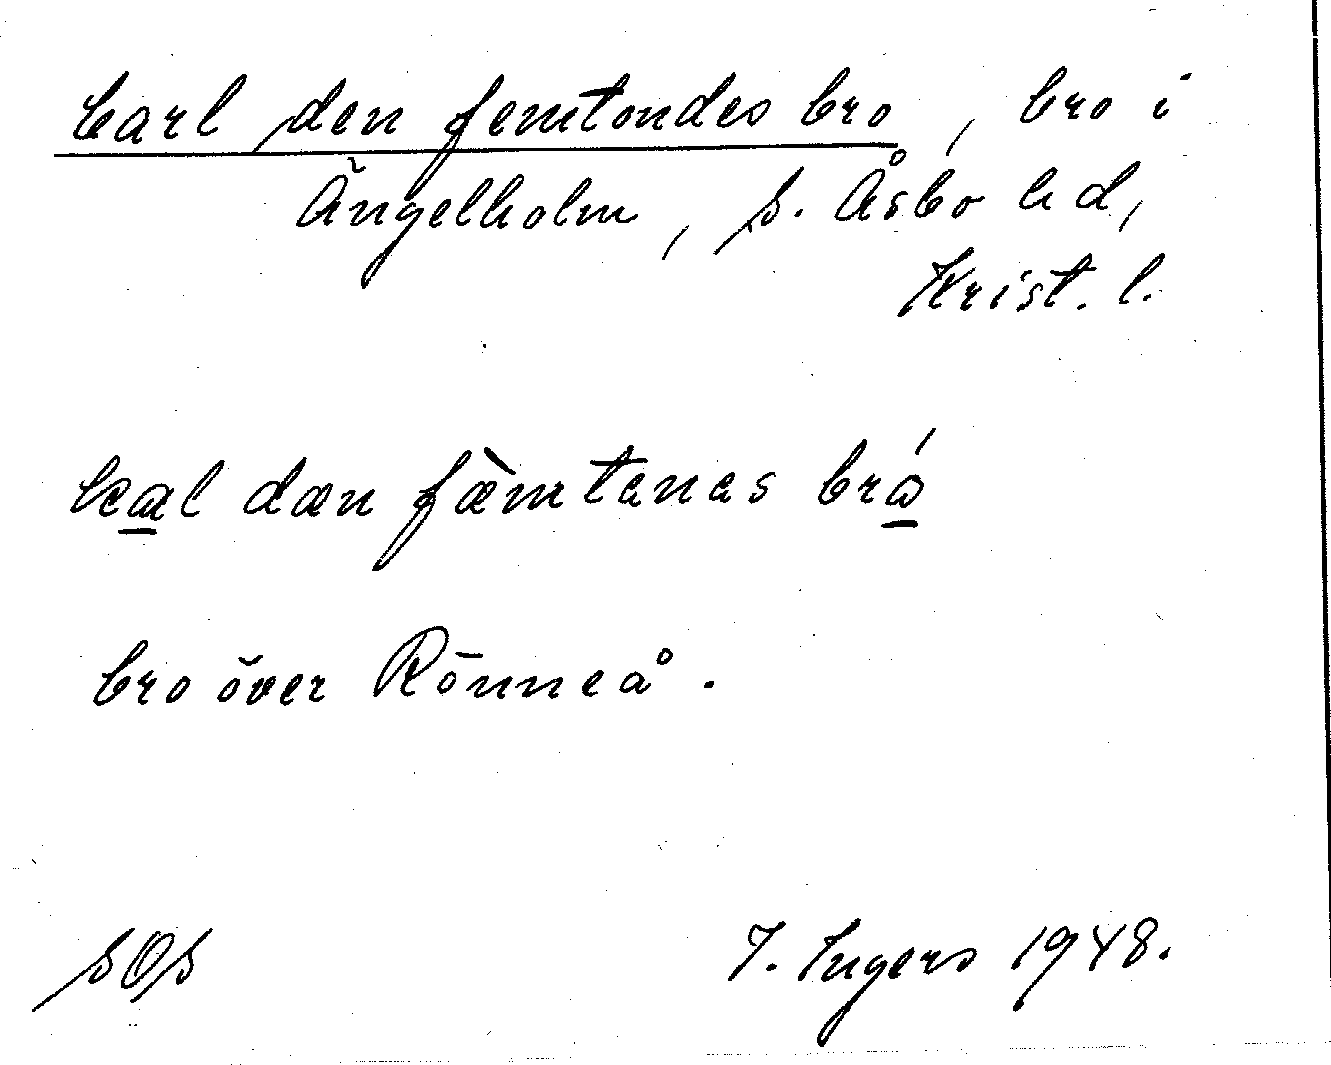 Carl den femtondes bro, bro i
Ängelholm, S. Åsbo hd,
Krist. l.
kal dæn fæ̀mtanas bró
bro över Rönneå.
SOS
I. Ingers 1948.